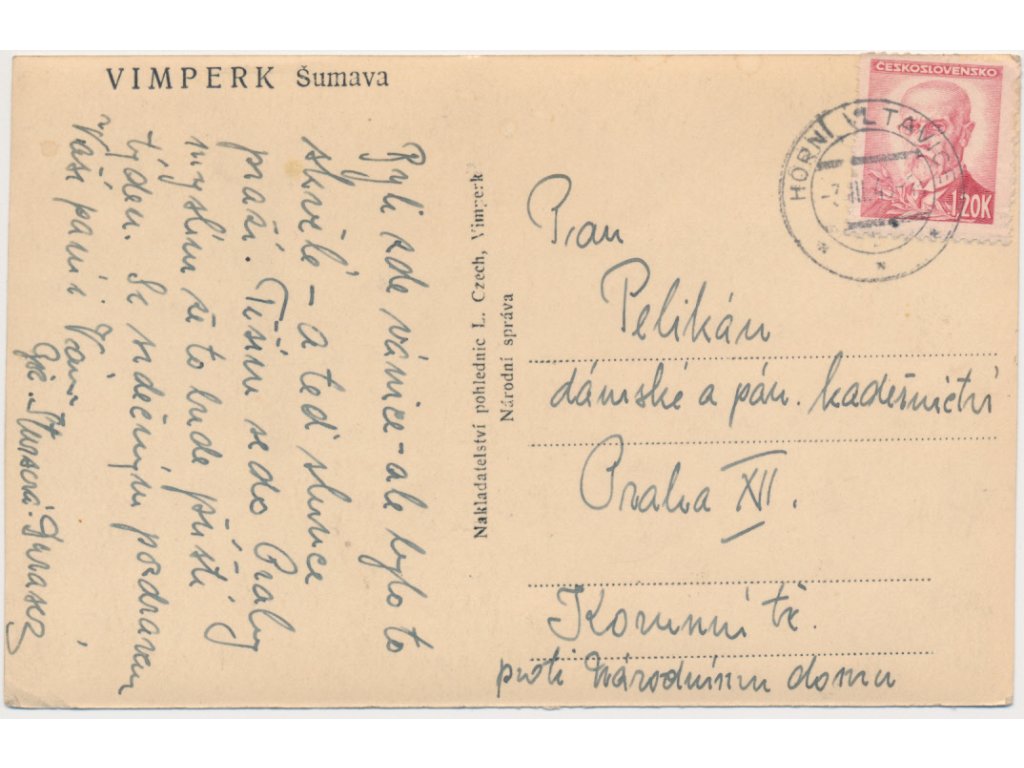 VIMPERK Šumava
ČESKOSLOVENSKO
1.20K
HORNÍ VLTAVICE
Byli zde vánice – ale bylo to
skvělé – a teď slunce
praží. Těším se do Prahy
myslím že to bude příští
týden. Se srdečným pozdravem
Vaší paní i Vám
Nakladatelství pohlednic L. Czech, Vimperk
Národní správa
Pan
Pelikán
dámské a pán. kadeřnictví
Praha XII.
Korunní tř.
proti Národnímu domu